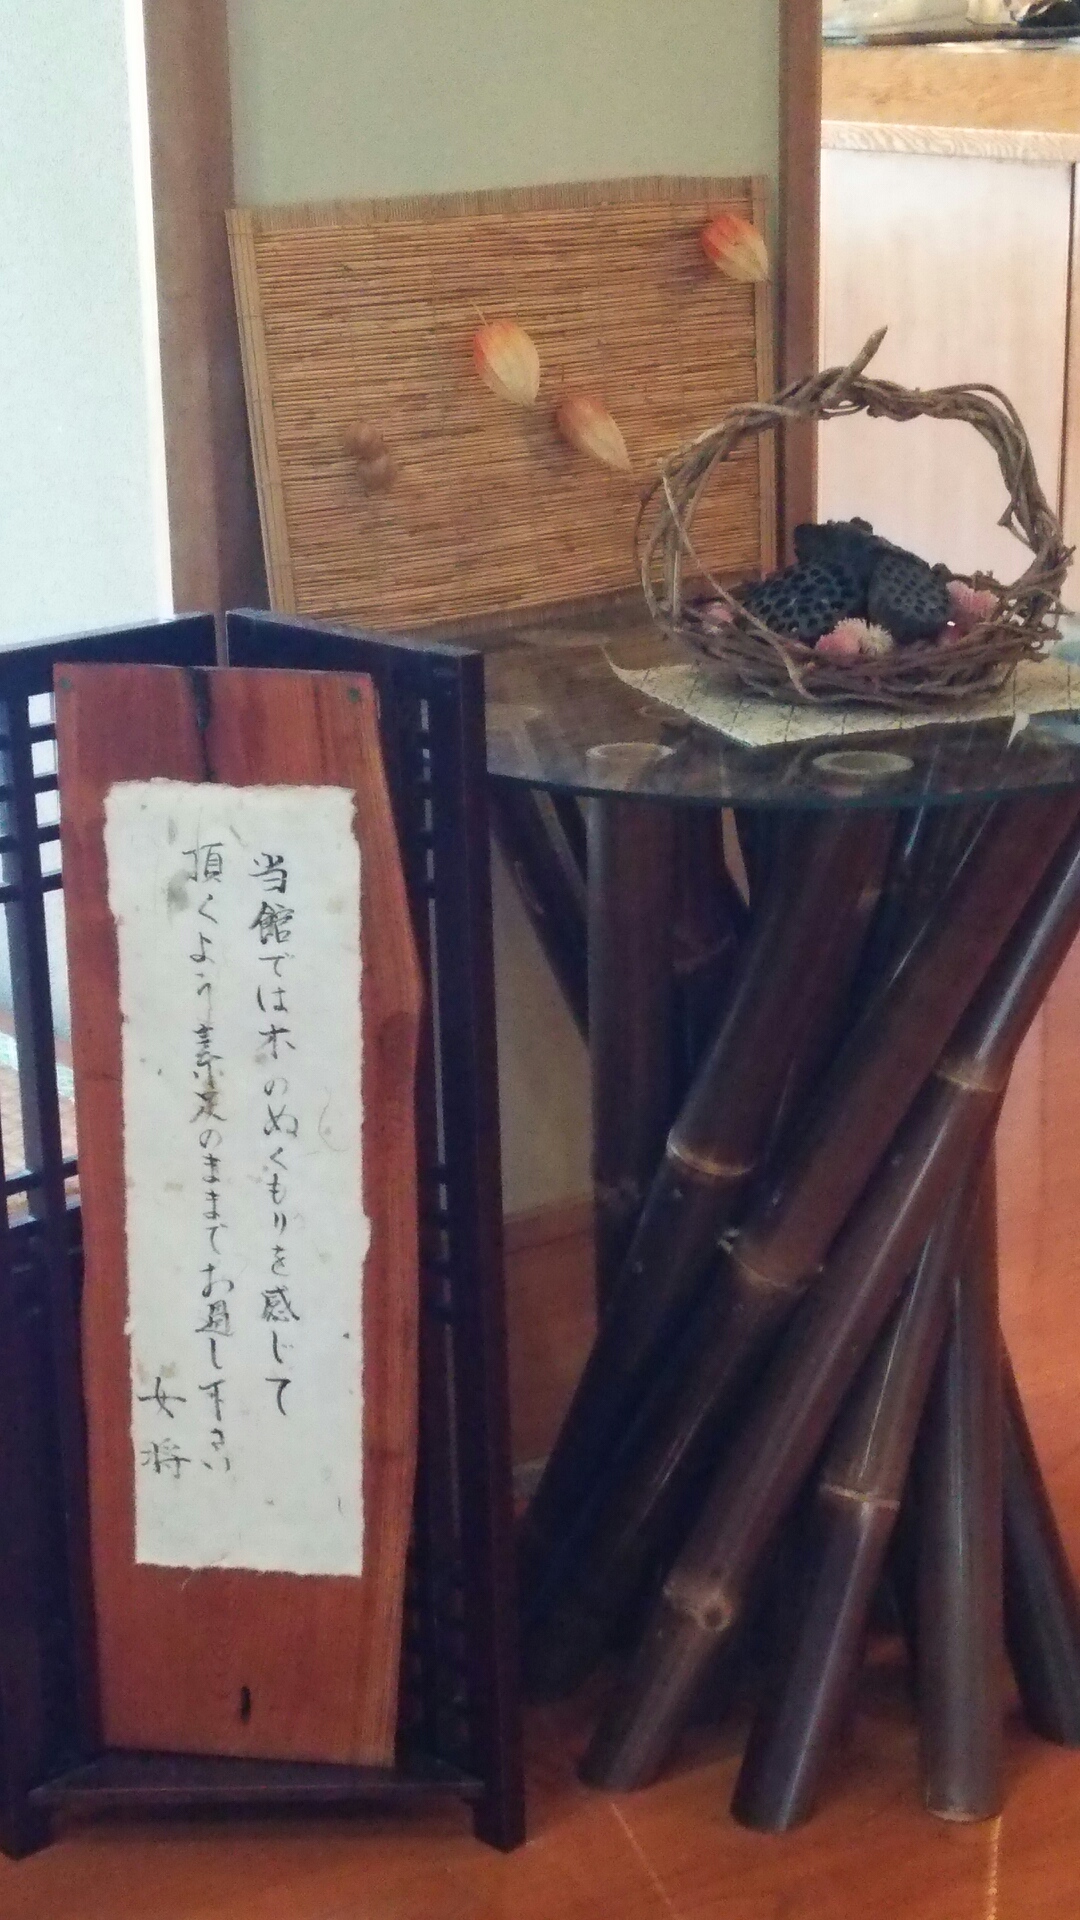 当館では木のぬくもりを感じて
頂くよう素足のままでお過し下さい
女将